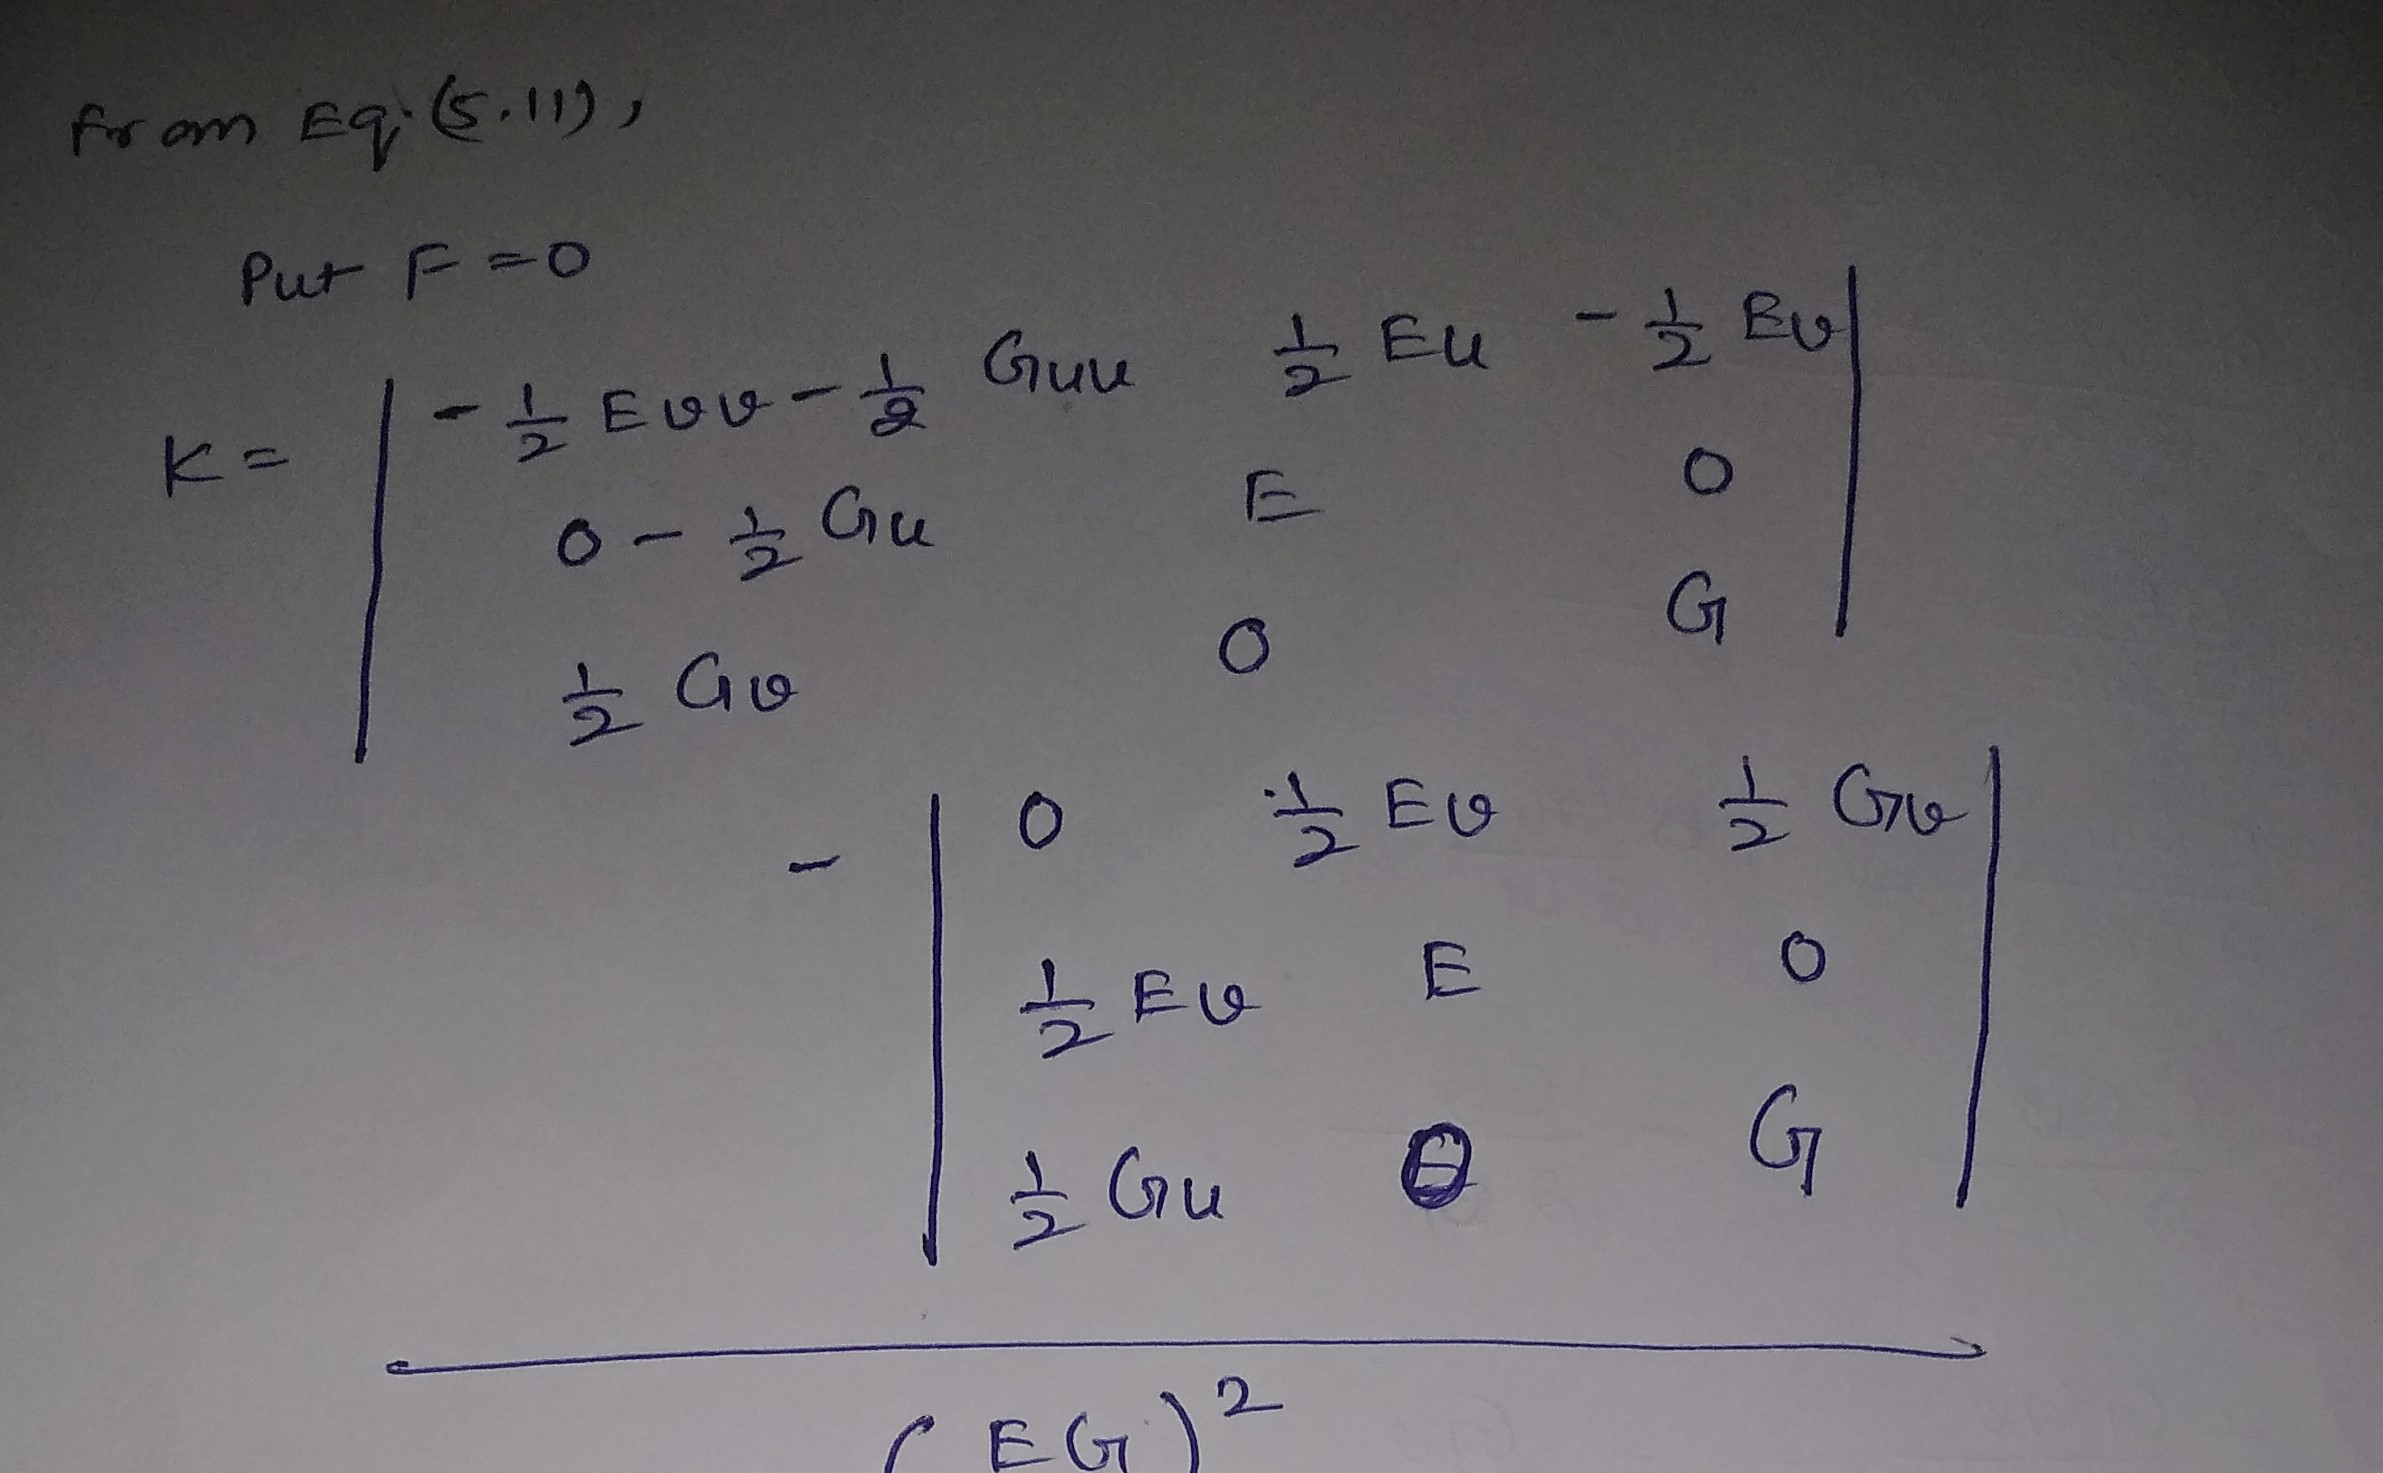 From Eq. (5.11),
Put F = 0
K = | -1/2 Evv - 1/2 Guu   1/2 Eu   -1/2 Ev |
| 0 - 1/2 Gu   E   0 |
| 1/2 Gv   0   G |
- | 0   1/2 Ev   1/2 Gv |
| 1/2 Ev   E   0 |
| 1/2 Gu   0   G |
(EG)²